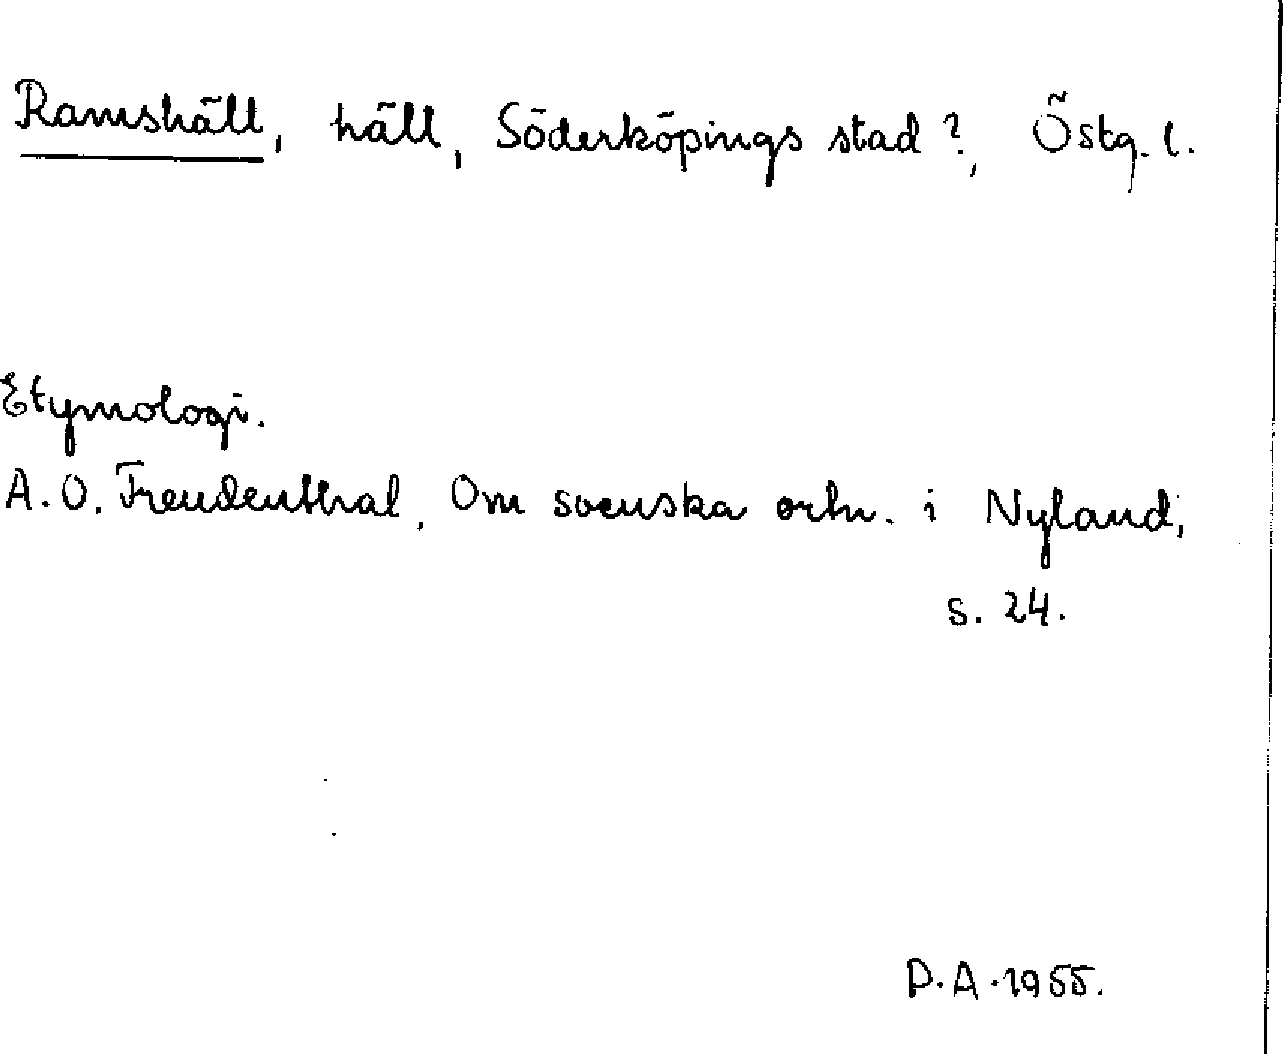 Ramshäll, häll, Söderköpings stad?, Östg. l.
Etymologi.
A. O. Freudenthal, Om svenska ortn. i Nyland,
s. 24.
P. A. 1955.